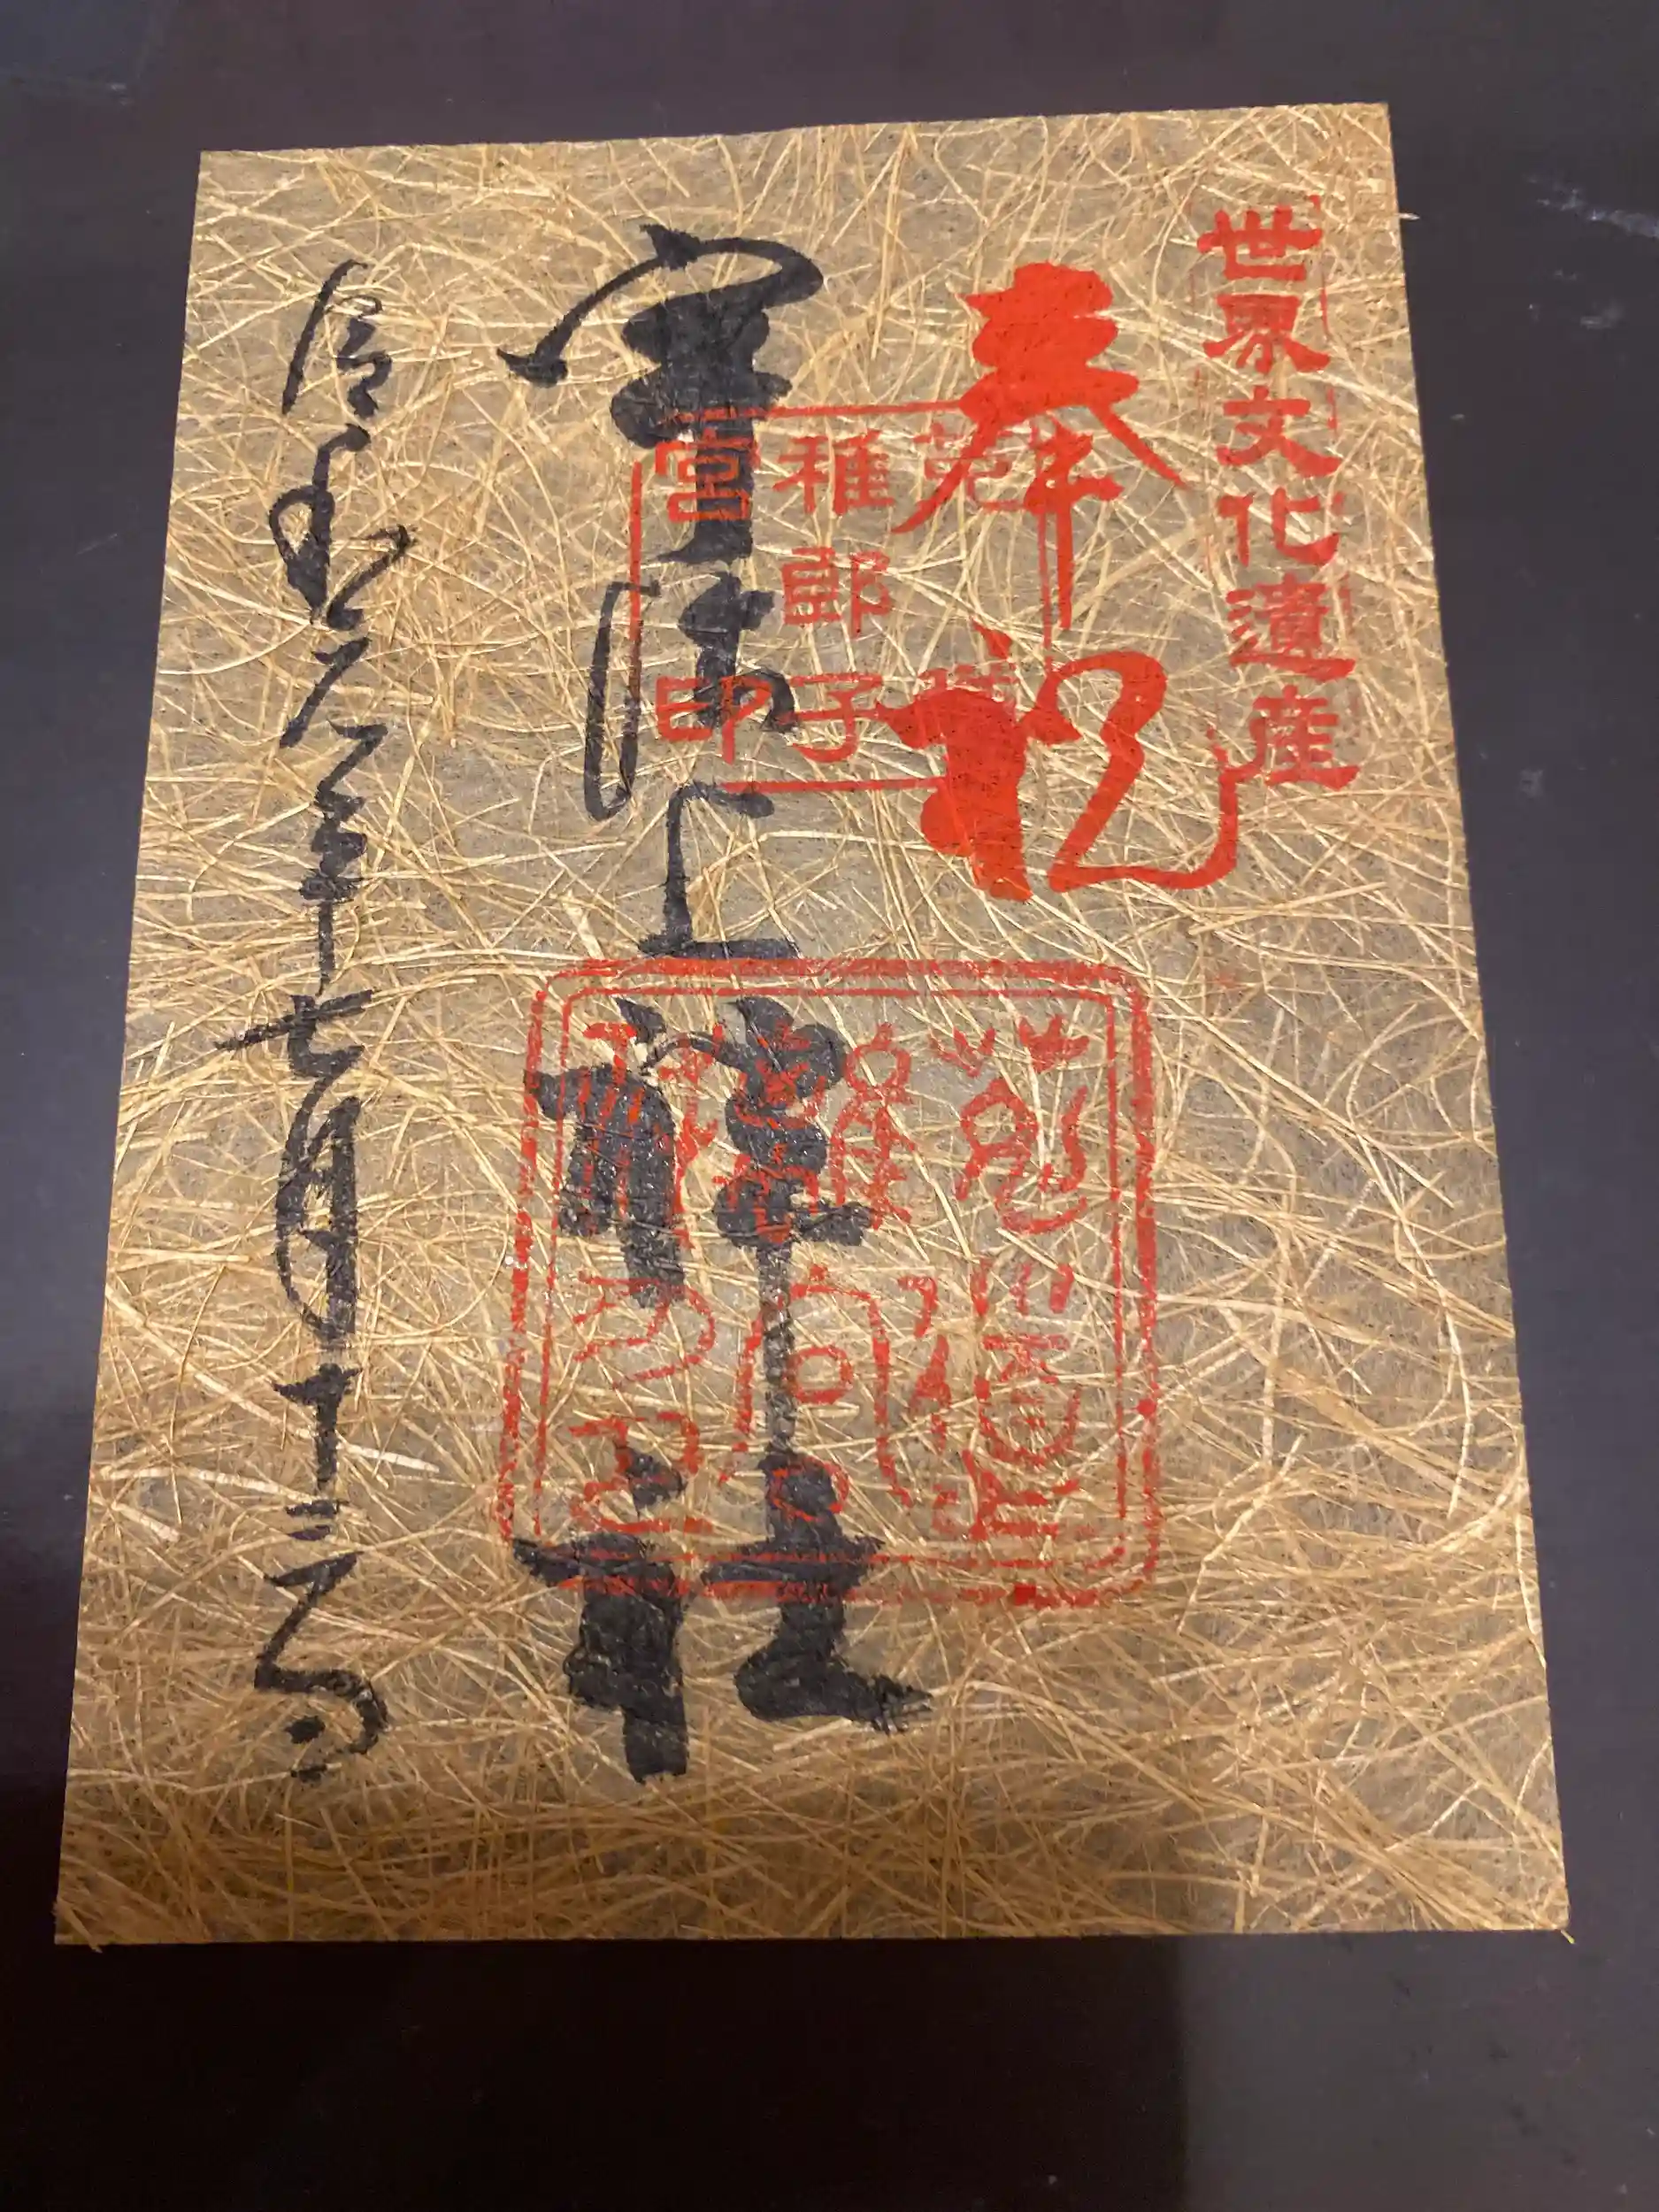 世界文化遺産
奉祝
菟道
稚郎子
宮印
宇治上神社
令和六年七月十二日